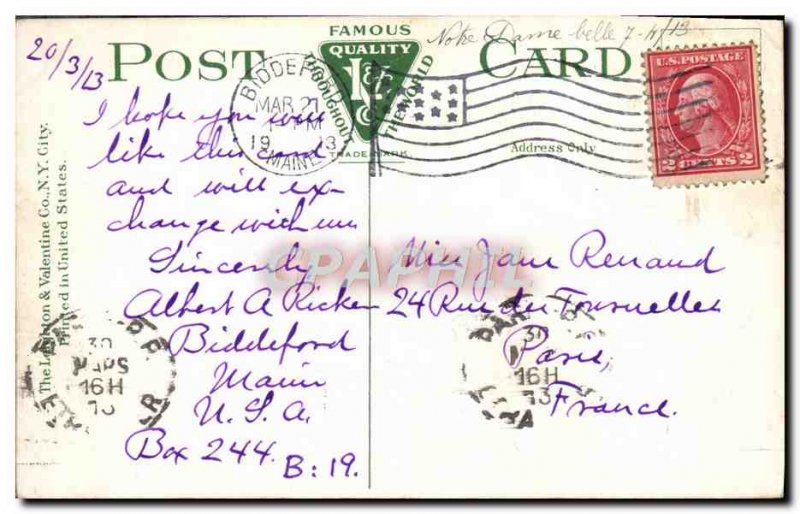 20/3/13
Notre Dame belle 7-4/13
POST CARD
FAMOUS
QUALITY
THROUGHOUT THE WORLD
TRADE MARK
BIDDEFORD
MAR 21
PM
1913
MAINE
U.S. POSTAGE
2 CENTS 2
Address Only
I hope you will
like this card
and will ex-
change with me
Sincerely
Albert A Ricker
Biddeford
Maine
U.S.A.
Box 244.
B:19.
Miss Jane Renaud
24 Rue des Tournelles
Paris,
France.
CPAPHIL
The Leighton & Valentine Co., N.Y. City.
Printed in United States.
30
MARS
16H
30
16H
13